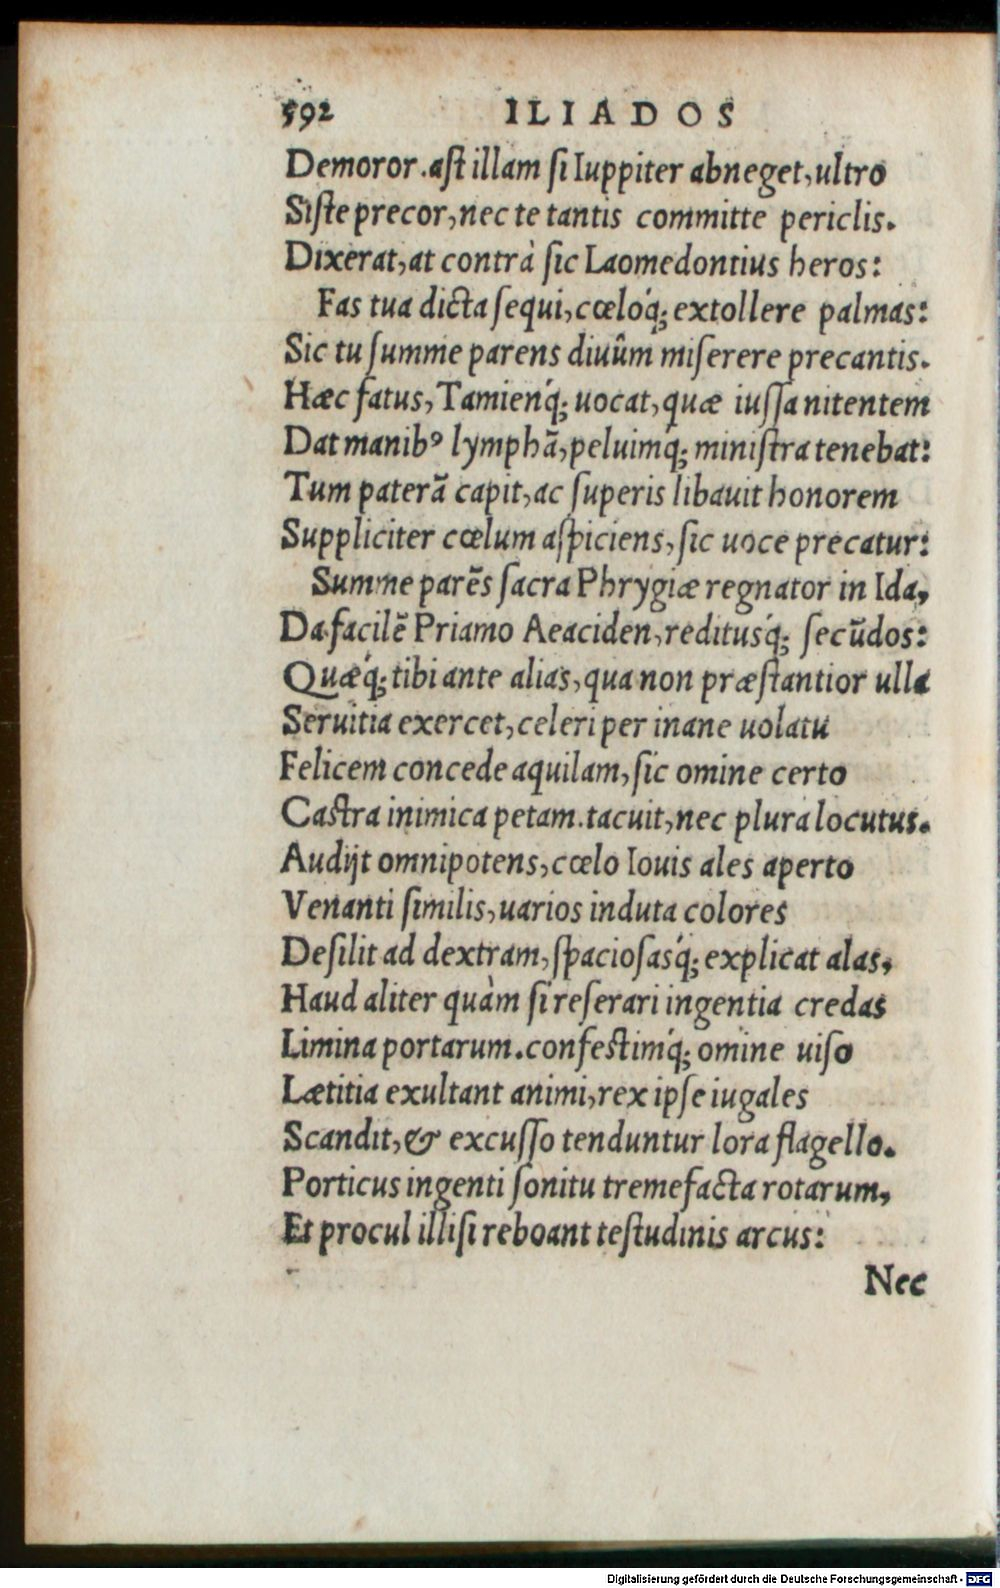 592 ILIADOS
Demoror. aſt illam ſi Iuppiter abneget, ultro
Siſte precor, nec te tantis committe periclis.
Dixerat, at contrà ſic Laomedontius heros:
Fas tua dicta ſequi, cœloq́; extollere palmas:
Sic tu ſumme parens diuûm miſerere precantis.
Hæc fatus, Tamienq́; uocat, quæ iuſſa nitentem
Dat manibꝰ lymphã, peluimq́; miniſtra tenebat:
Tum paterã capit, ac ſuperis libauit honorem
Suppliciter cœlum aſpiciens, ſic uoce precatur:
Summe parẽs ſacra Phrygiæ regnator in Ida,
Da facilẽ Priamo Aeaciden, reditusq́; ſecũdos:
Quæq́; tibi ante alias, qua non præſtantior ulla
Seruitia exercet, celeri per inane uolatu
Felicem concede aquilam, ſic omine certo
Caſtra inimica petam. tacuit, nec plura locutus.
Audijt omnipotens, cœlo Iouis ales aperto
Venanti ſimilis, uarios induta colores
Deſilit ad dextram, ſpacioſasq́; explicat alas,
Haud aliter quàm ſi reſerari ingentia credas
Limina portarum. confeſtimq́; omine uiſo
Lætitia exultant animi, rex ipſe iugales
Scandit, & excuſſo tenduntur lora flagello.
Porticus ingenti ſonitu tremefacta rotarum,
Et procul illiſi reboant teſtudinis arcus:
Nec
Digitalisierung gefördert durch die Deutsche Forschungsgemeinschaft - DFG